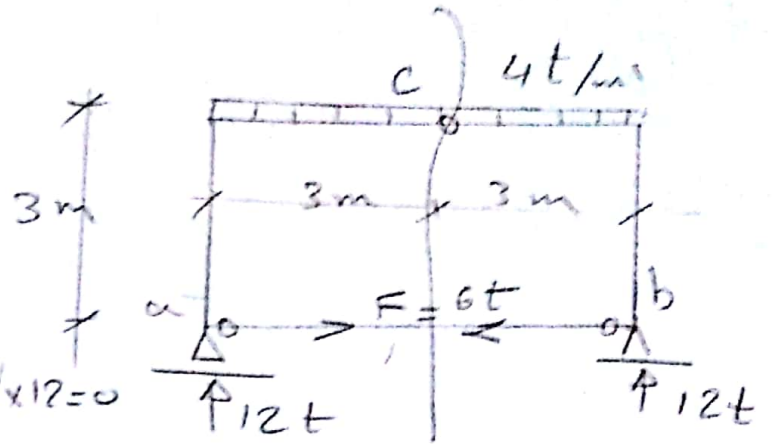 C 4t/m'
3m 3m 3m
a F = 6t b
x12=0 12t 12t